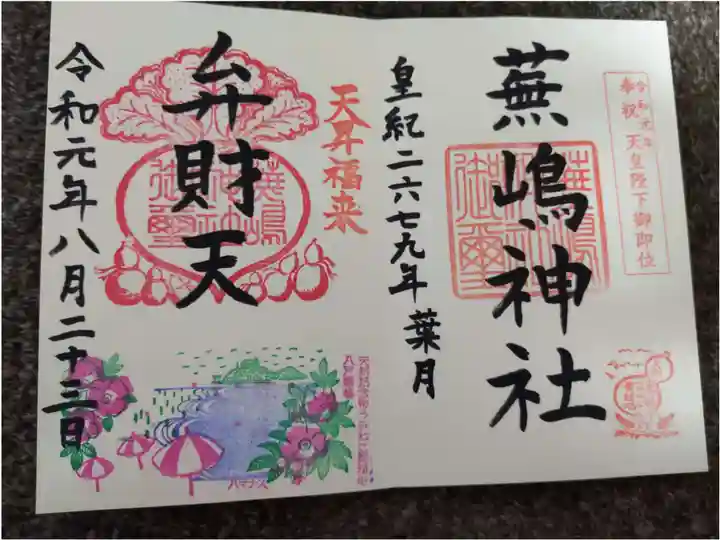 奉祝
令和元年
天皇陛下御即位
蕪嶋神社
蕪嶋神社
御璽
皇紀二六七九年 葉月
天昇福来
弁財天
蕪嶋
神社
御璽
令和元年八月二十三日
ハマナス